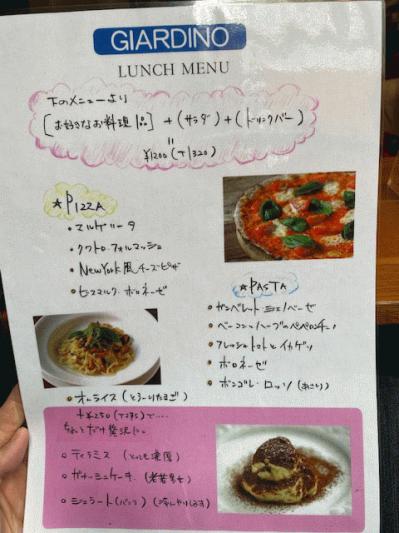 GIARDINO
LUNCH MENU
下のメニューより
[お好きなお料理1品] + (サラダ) + (ドリンクバー)
=
¥1200 (T1320)
★PIZZA
・マルゲリータ
・クワトロ・フォルマッジ
・NewYork風チーズピザ
・ビスマルク・ボロネーゼ
★PASTA
・ガンベレット・ジェノベーゼ
・ベーコンとハーブのペペロンチーノ
・フレッシュトマトとイカゲソ
・ボロネーゼ
・ボンゴレ・ロッソ (あさり)
・オムライス (とろーりたまご)
+¥250 (T275) で....
ちょっとだけ贅沢に。
○ ティラミス (とっても濃厚)
○ ガトーショコラ
○ ジェラート (バニラ)